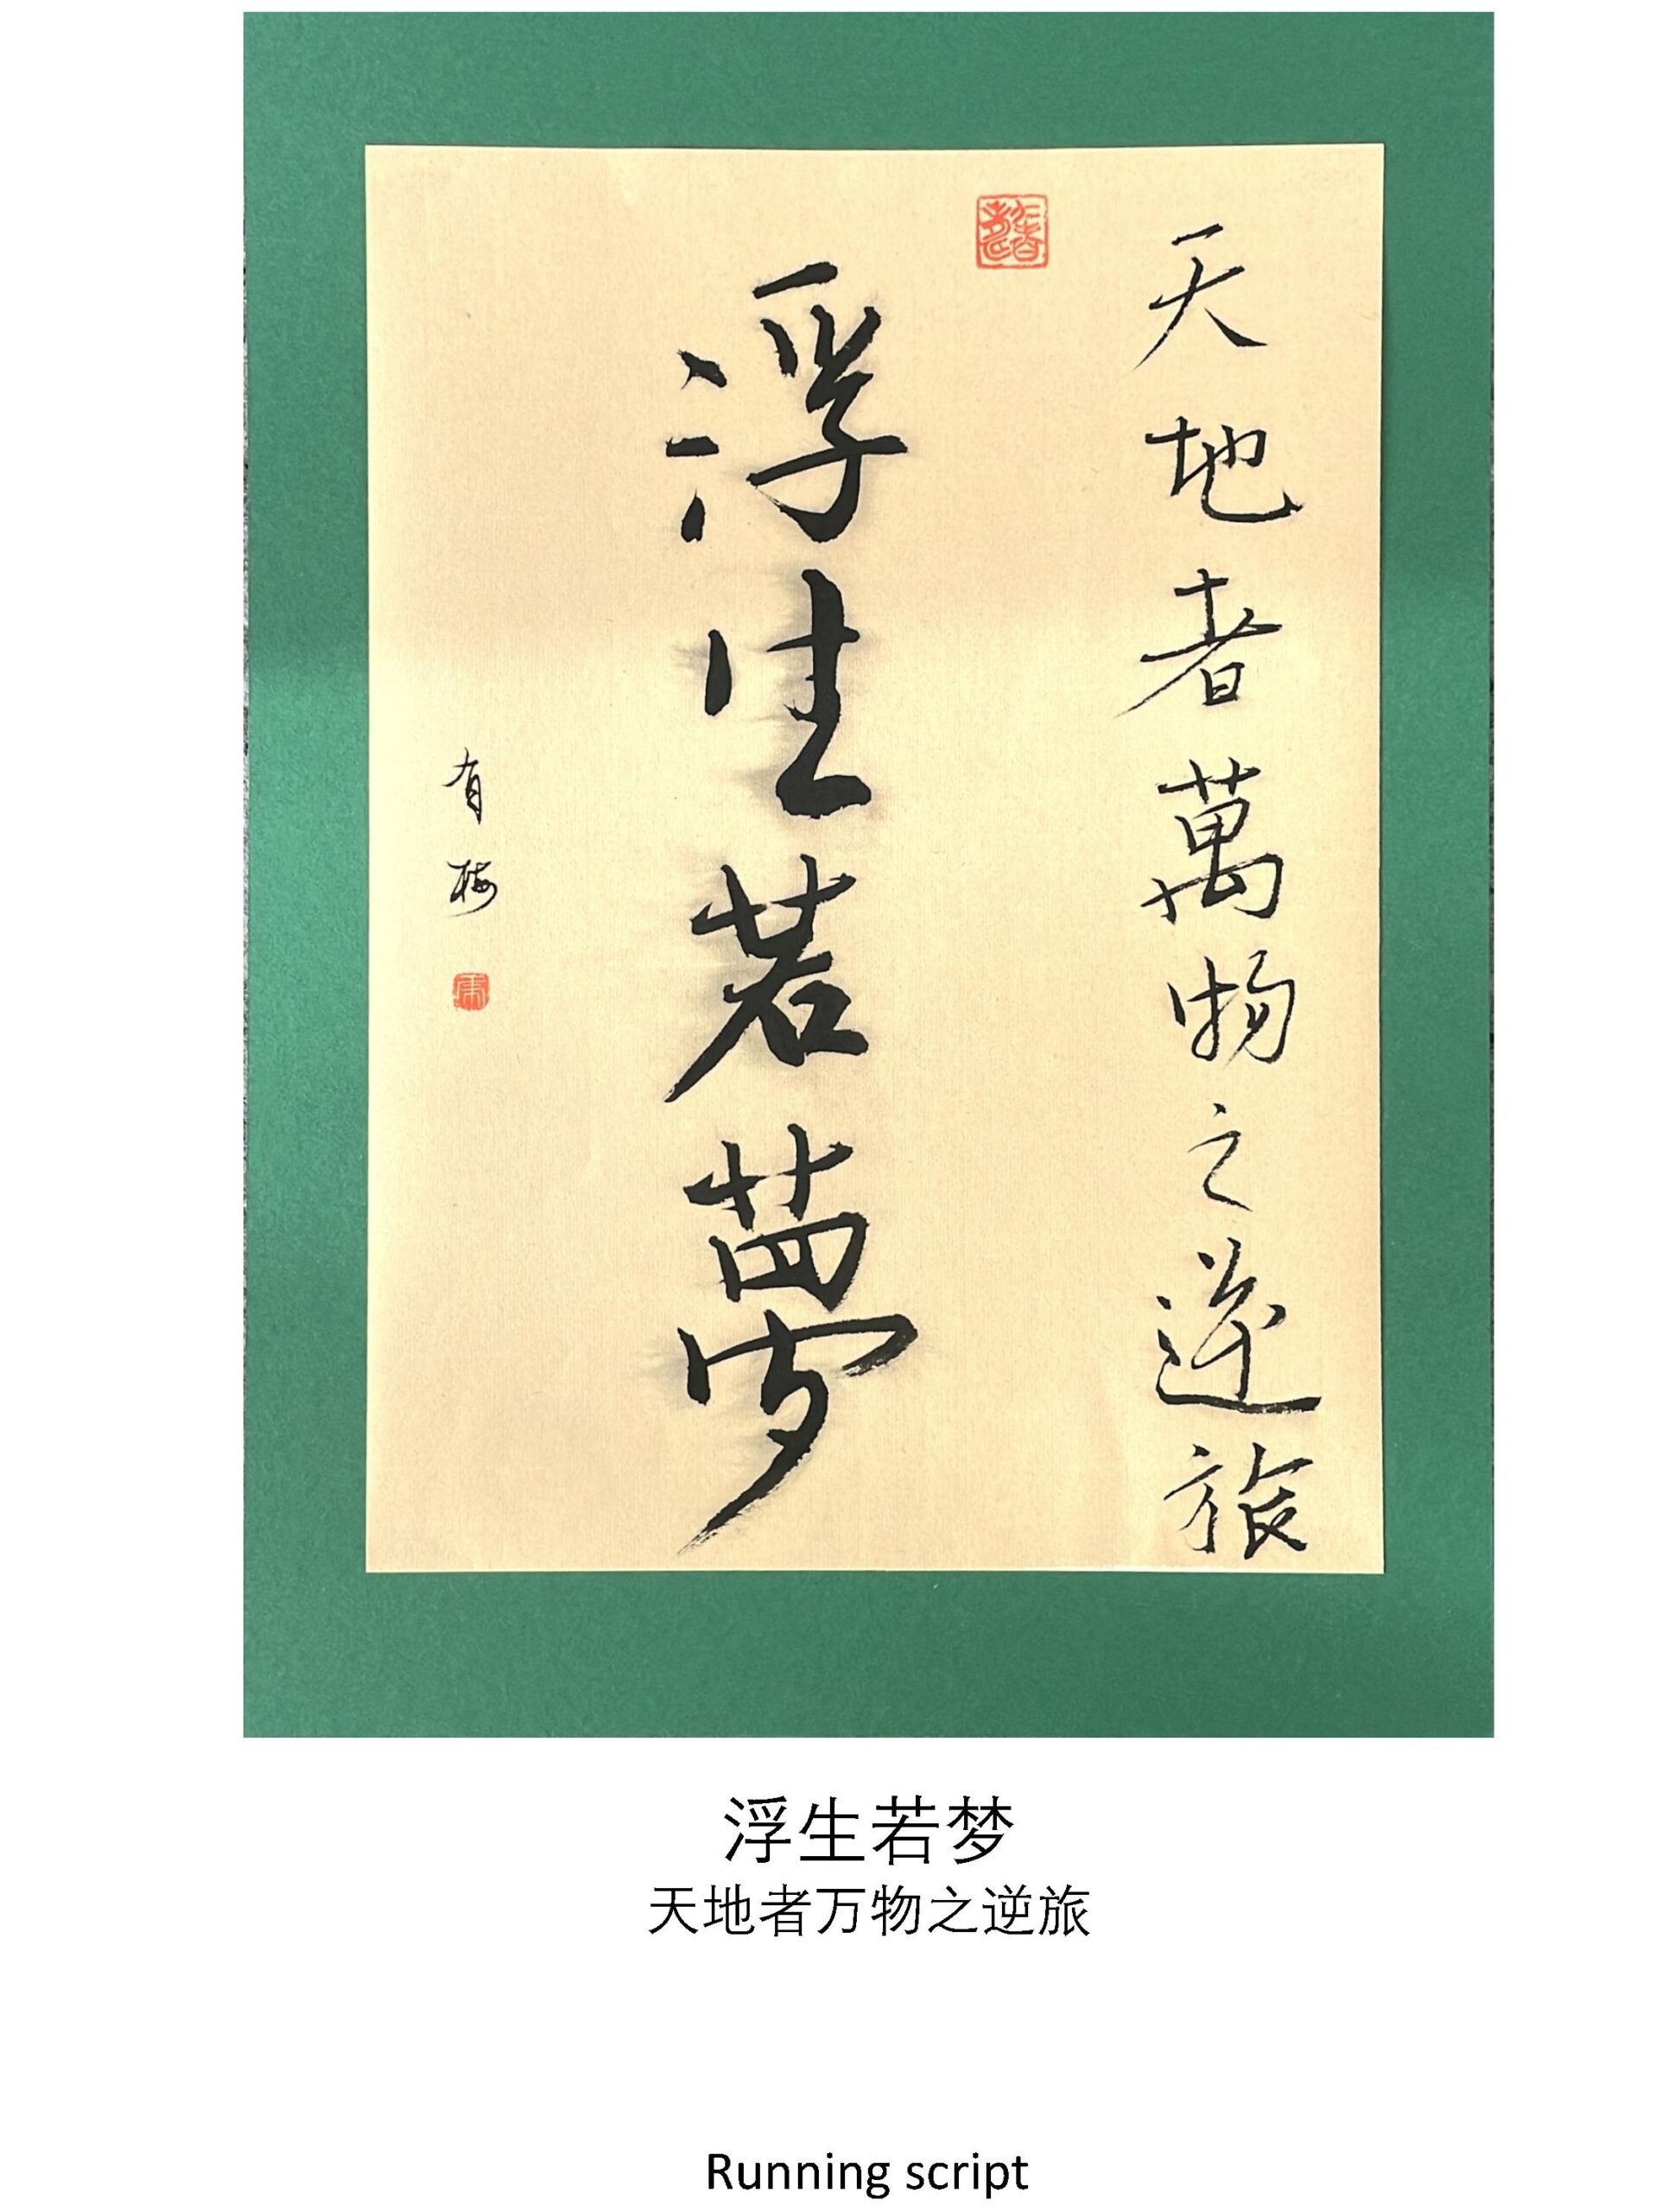 天地者萬物之逆旅
浮生若夢
有梅
浮生若梦
天地者万物之逆旅
Running script